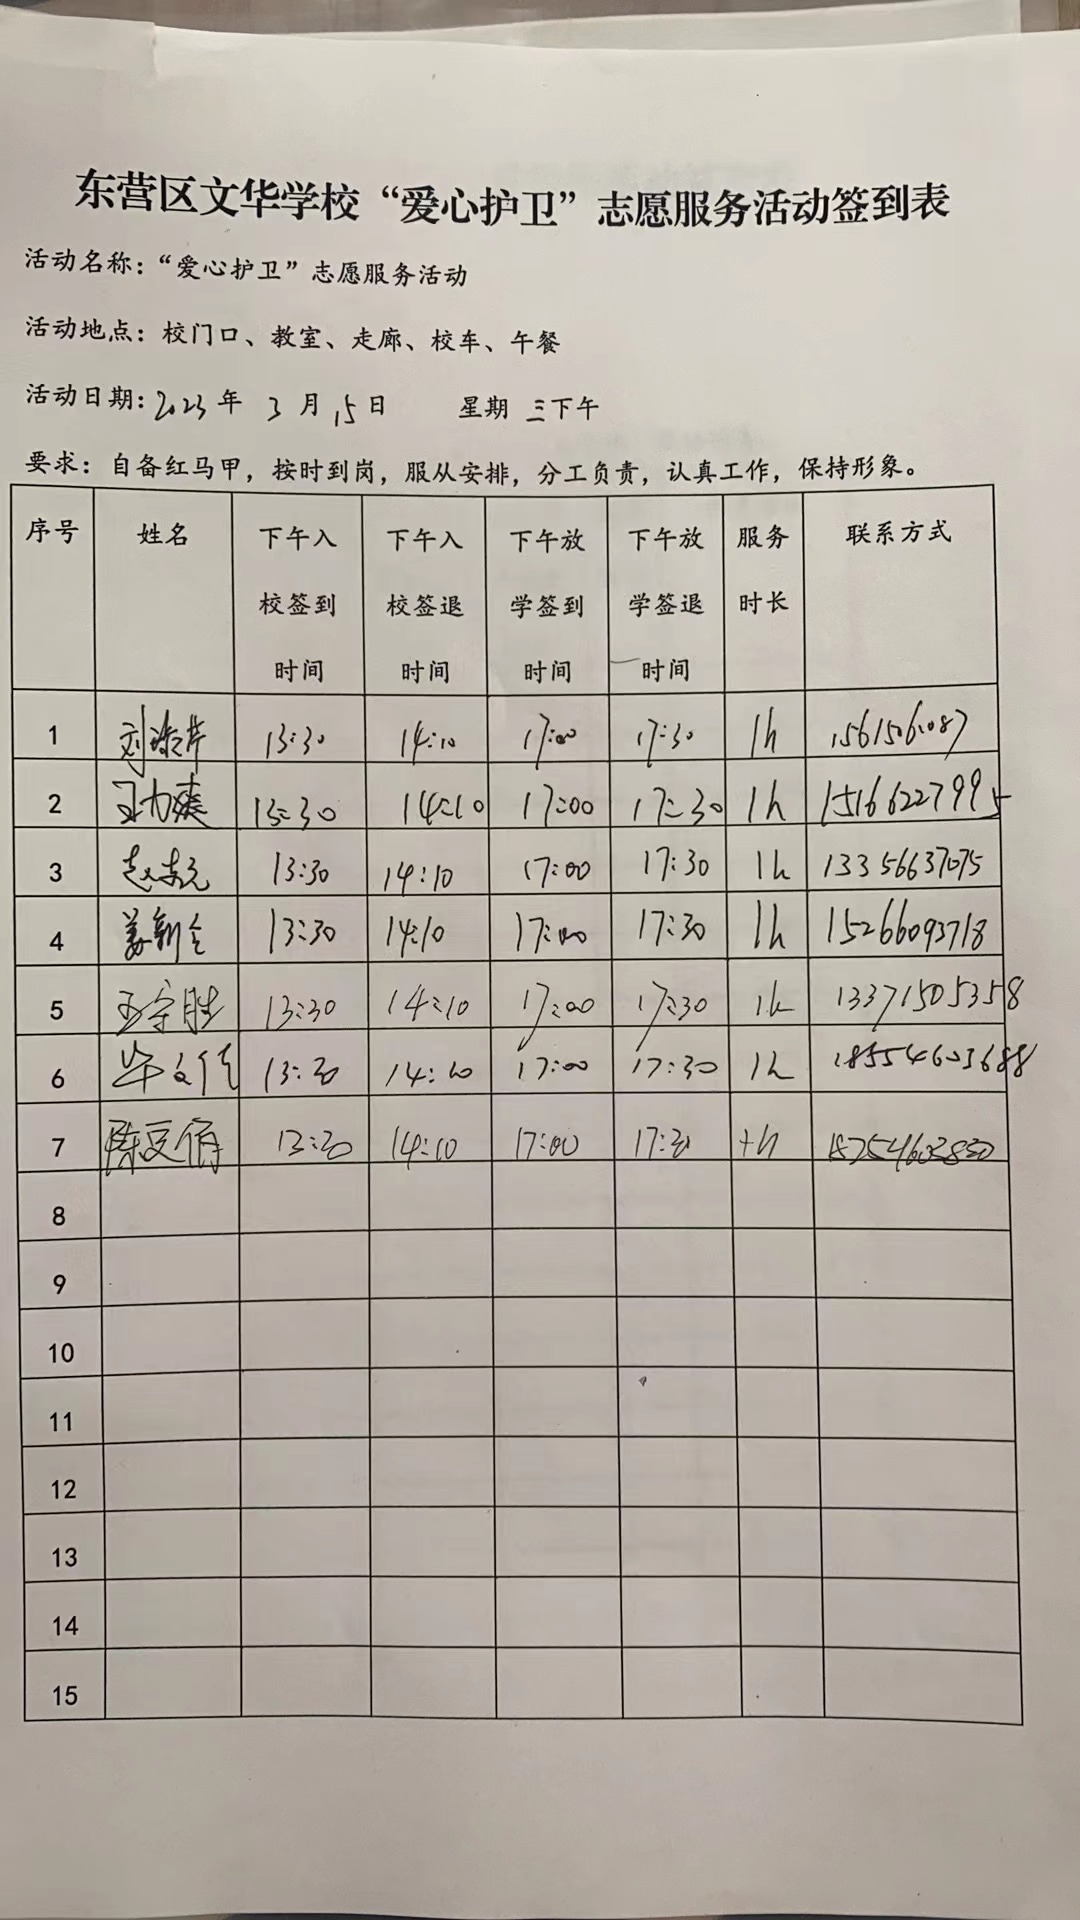 东营区文华学校“爱心护卫”志愿服务活动签到表
活动名称：“爱心护卫”志愿服务活动
活动地点：校门口、教室、走廊、校车、午餐
活动日期：2023年 3月15日 星期三下午
要求：自备红马甲，按时到岗，服从安排，分工负责，认真工作，保持形象。
序号 姓名 下午入校签到时间 下午入校签退时间 下午放学签到时间 下午放学签退时间 服务时长 联系方式
1 13:30 14:10 17:00 17:30 1h 15615061087
2 王力爽 13:30 14:10 17:00 17:30 1h 15166227995
3 13:30 14:10 17:00 17:30 1h 13356637075
4 姜新全 13:30 14:10 17:00 17:30 1h 15266093718
5 王守胜 13:30 14:10 17:00 17:30 1h 13371505358
6 毕文佳 13:30 14:10 17:00 17:30 1h 18554603688
7 13:30 14:10 17:00 17:30 1h
8
9
10
11
12
13
14
15